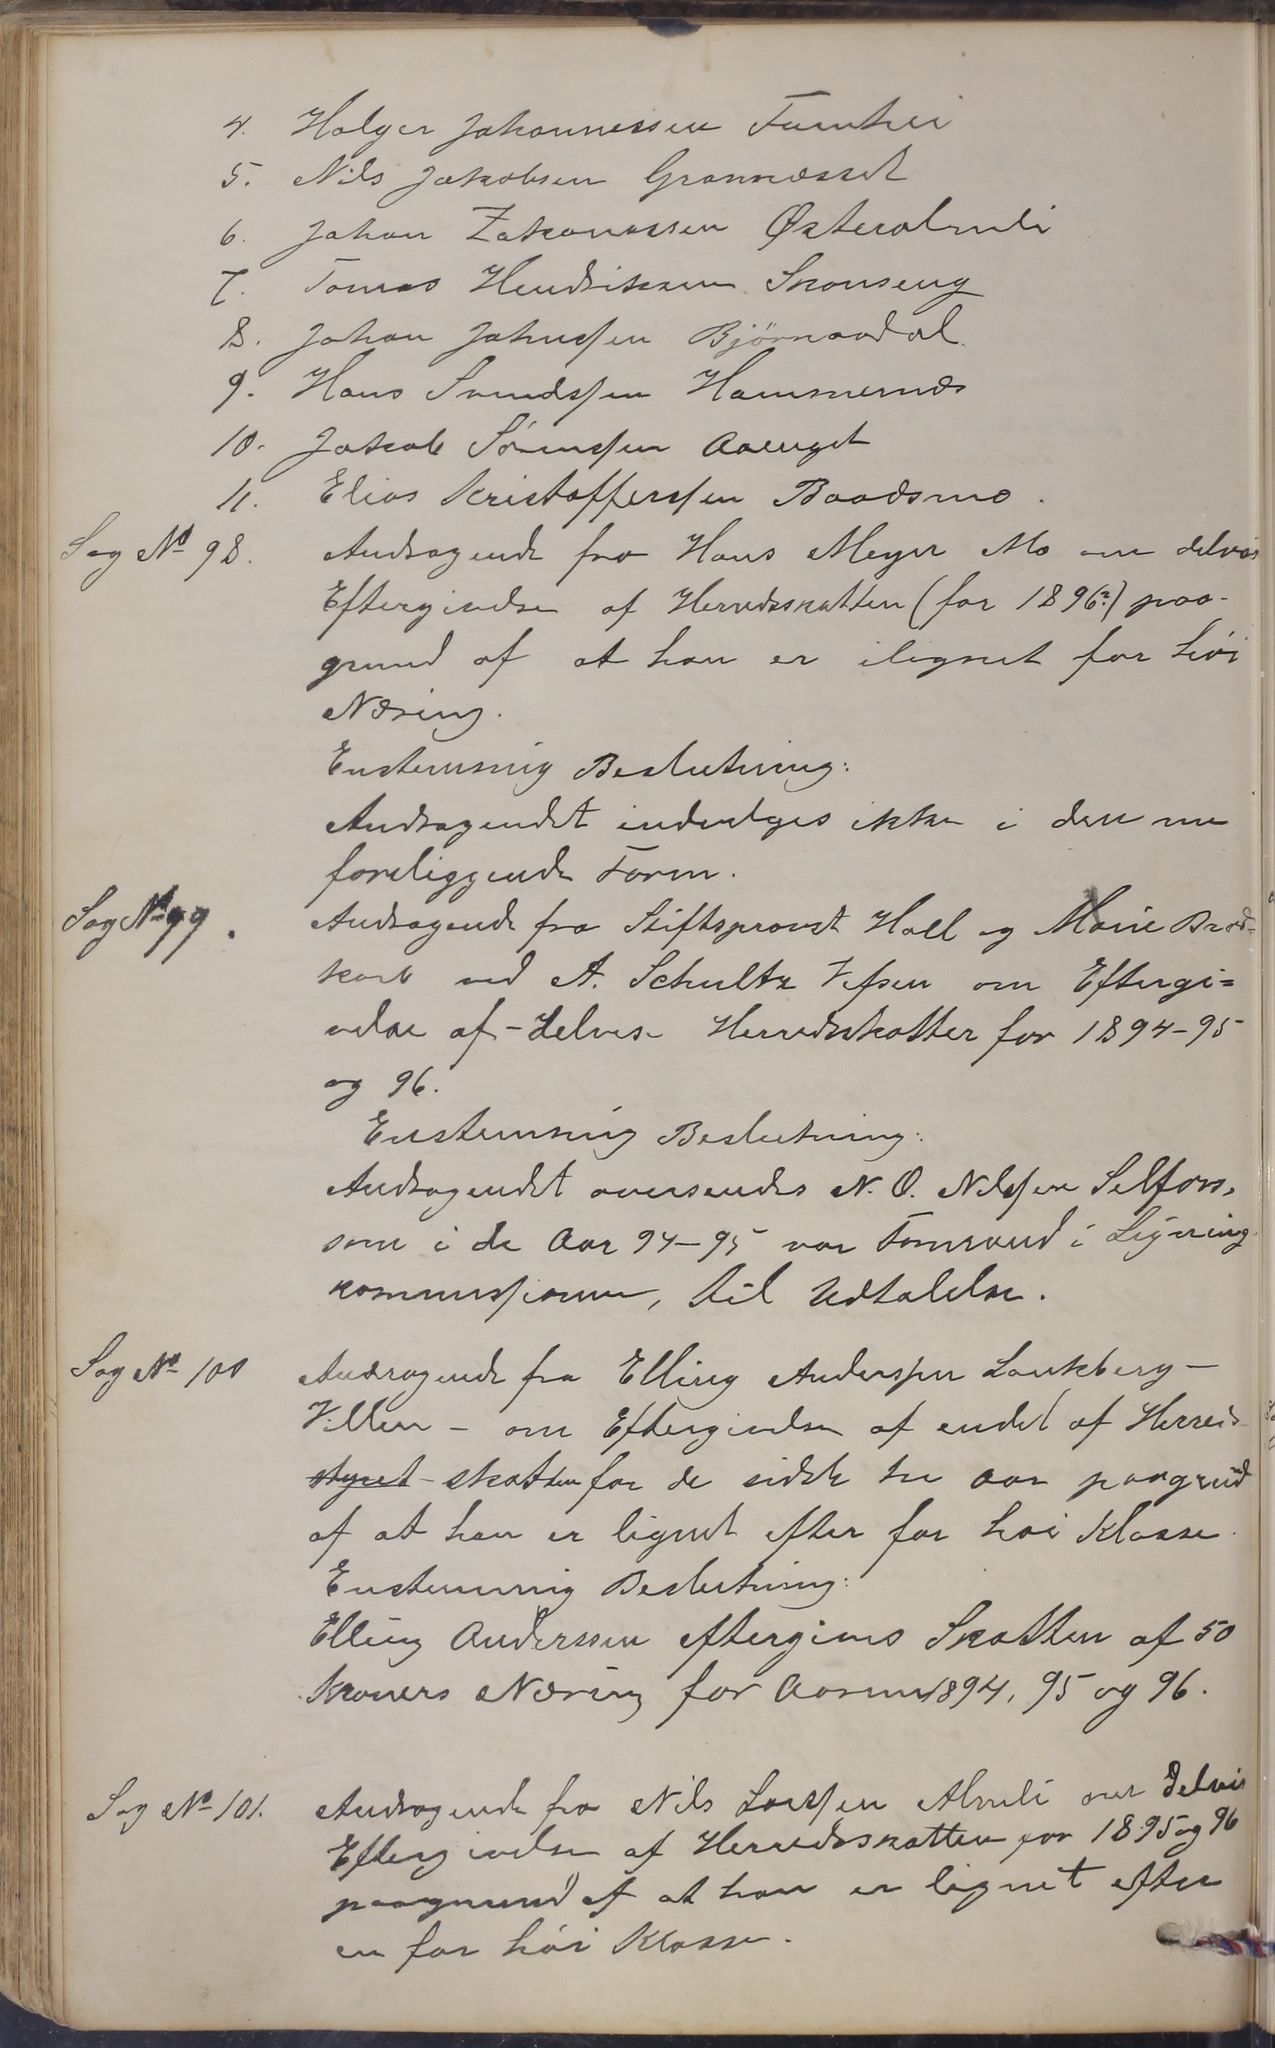 4. Holger Johannessen
5. Nils Jakobsen Grannæsset
6. Johan Zakariassen Østeralmli
7. Tomas Hendriksen Skonseng
8. Johan Johnssen Bjørnaadal
9. Hans Svendssen Hammernæs
10. Jakob Sørenssen Aaenget
11. Elias Kristofferssen Baadsmo.
Sag № 98. Andragende fra Hans Meyer Mo om delvis
Eftergivelse af Herredsskatten (for 1896?) paa-
grund af at han er ilignet for høi
Næring.
Enstemmig Beslutning:
Andragendet indvilges ikke i den nu
foreliggende Form.
Sag № 99. Andragende fra Stiftsprovst Hall og Marie
ved A. Schultz Vefsen om Eftergi=
velse af - Herredsskatter for 1894-95
og 96.
Enstemmig Beslutning:
Andragendet oversendes N. O. Nilssen Selfors,
som i de Aar 94-95 var Formand i Ligning
kommissionen, til Udtalelse.
Sag № 100 Andragende fra Elling Anderssen Lankberg -
Villen - om Eftergivelse af endel af Herreds
styret - skatten for de sidste tre Aar paagrund
af at han er lignet efter for høi Klasse.
Enstemmig Beslutning:
Elling Anderssen eftergives Skatten af 50
Kroners Næring for Aarene 1894, 95 og 96.
Sag № 101. Andragende fra Nils Larssen Almli om delvis
Eftergivelse af Herredsskatten for 1895 og 96
paagrund af at han er lignet efter
en for høi Klasse.